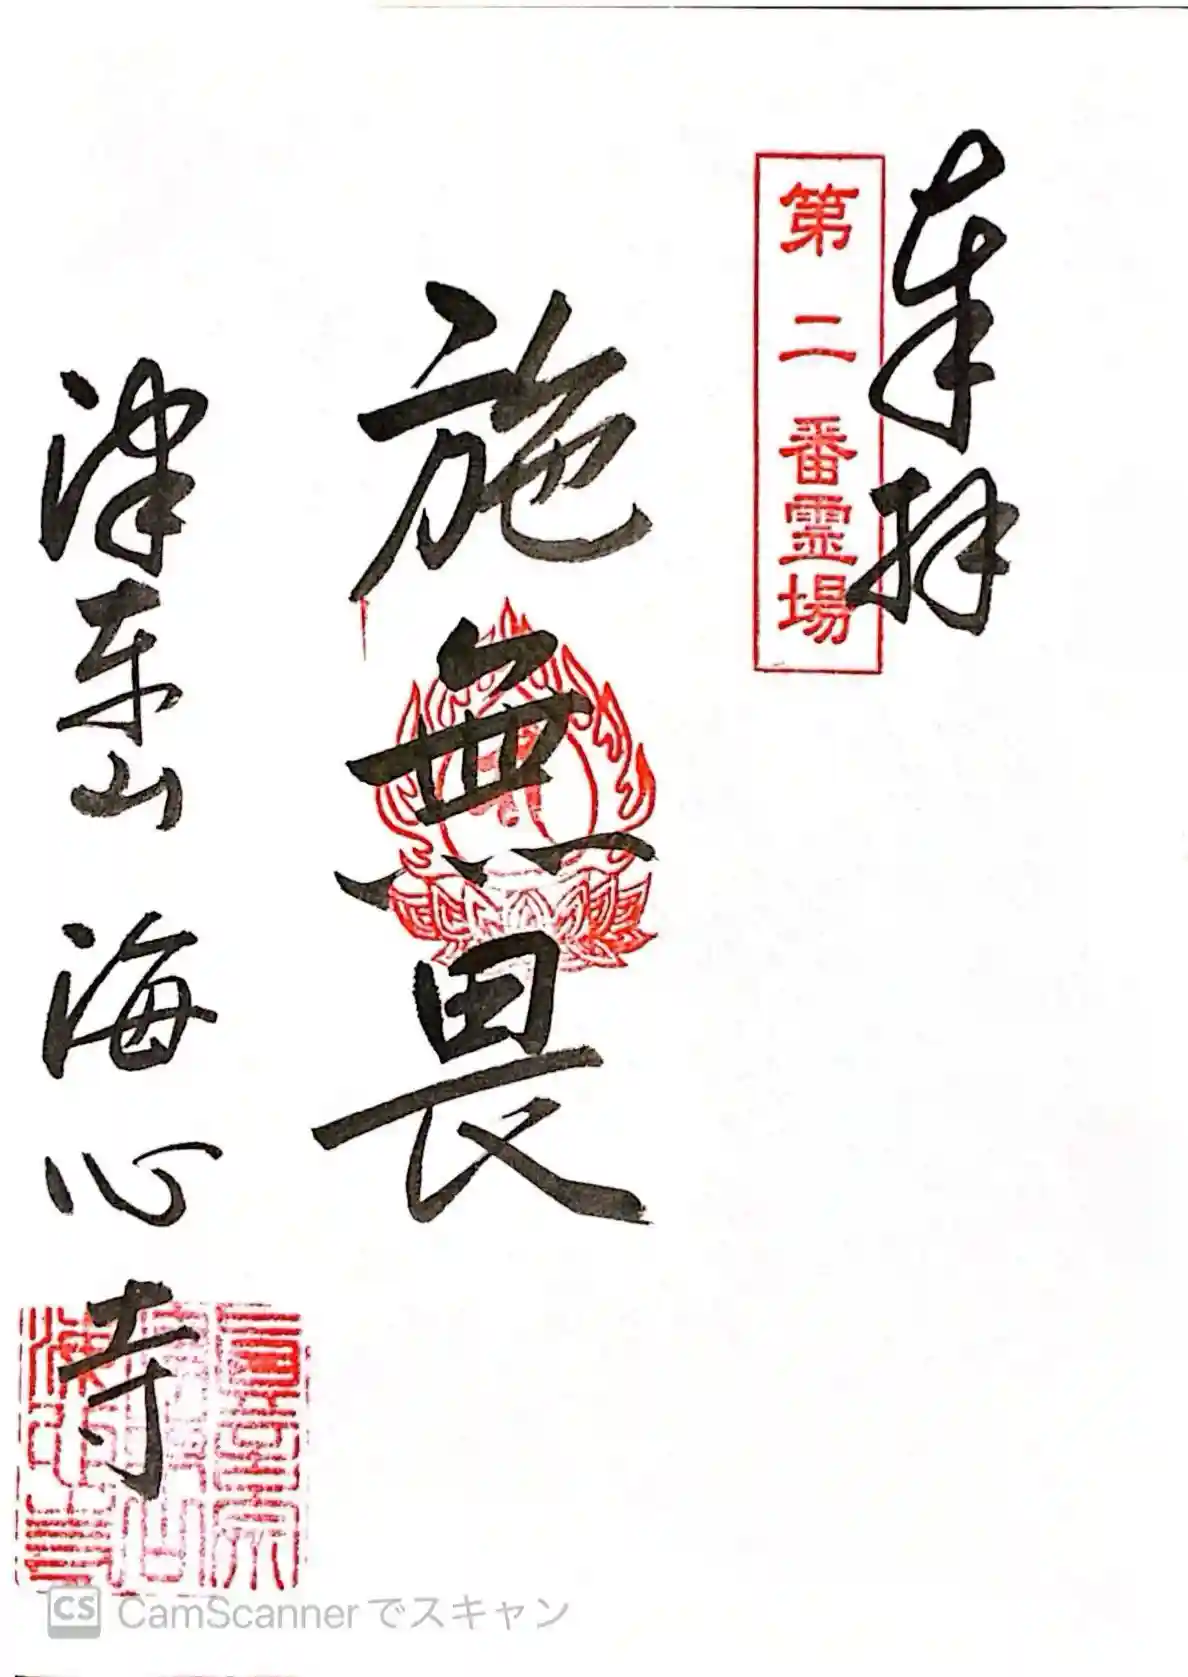 奉拝
第二番霊場
施無畏
津東山 海心寺
真言宗
海心寺
CS CamScannerでスキャン